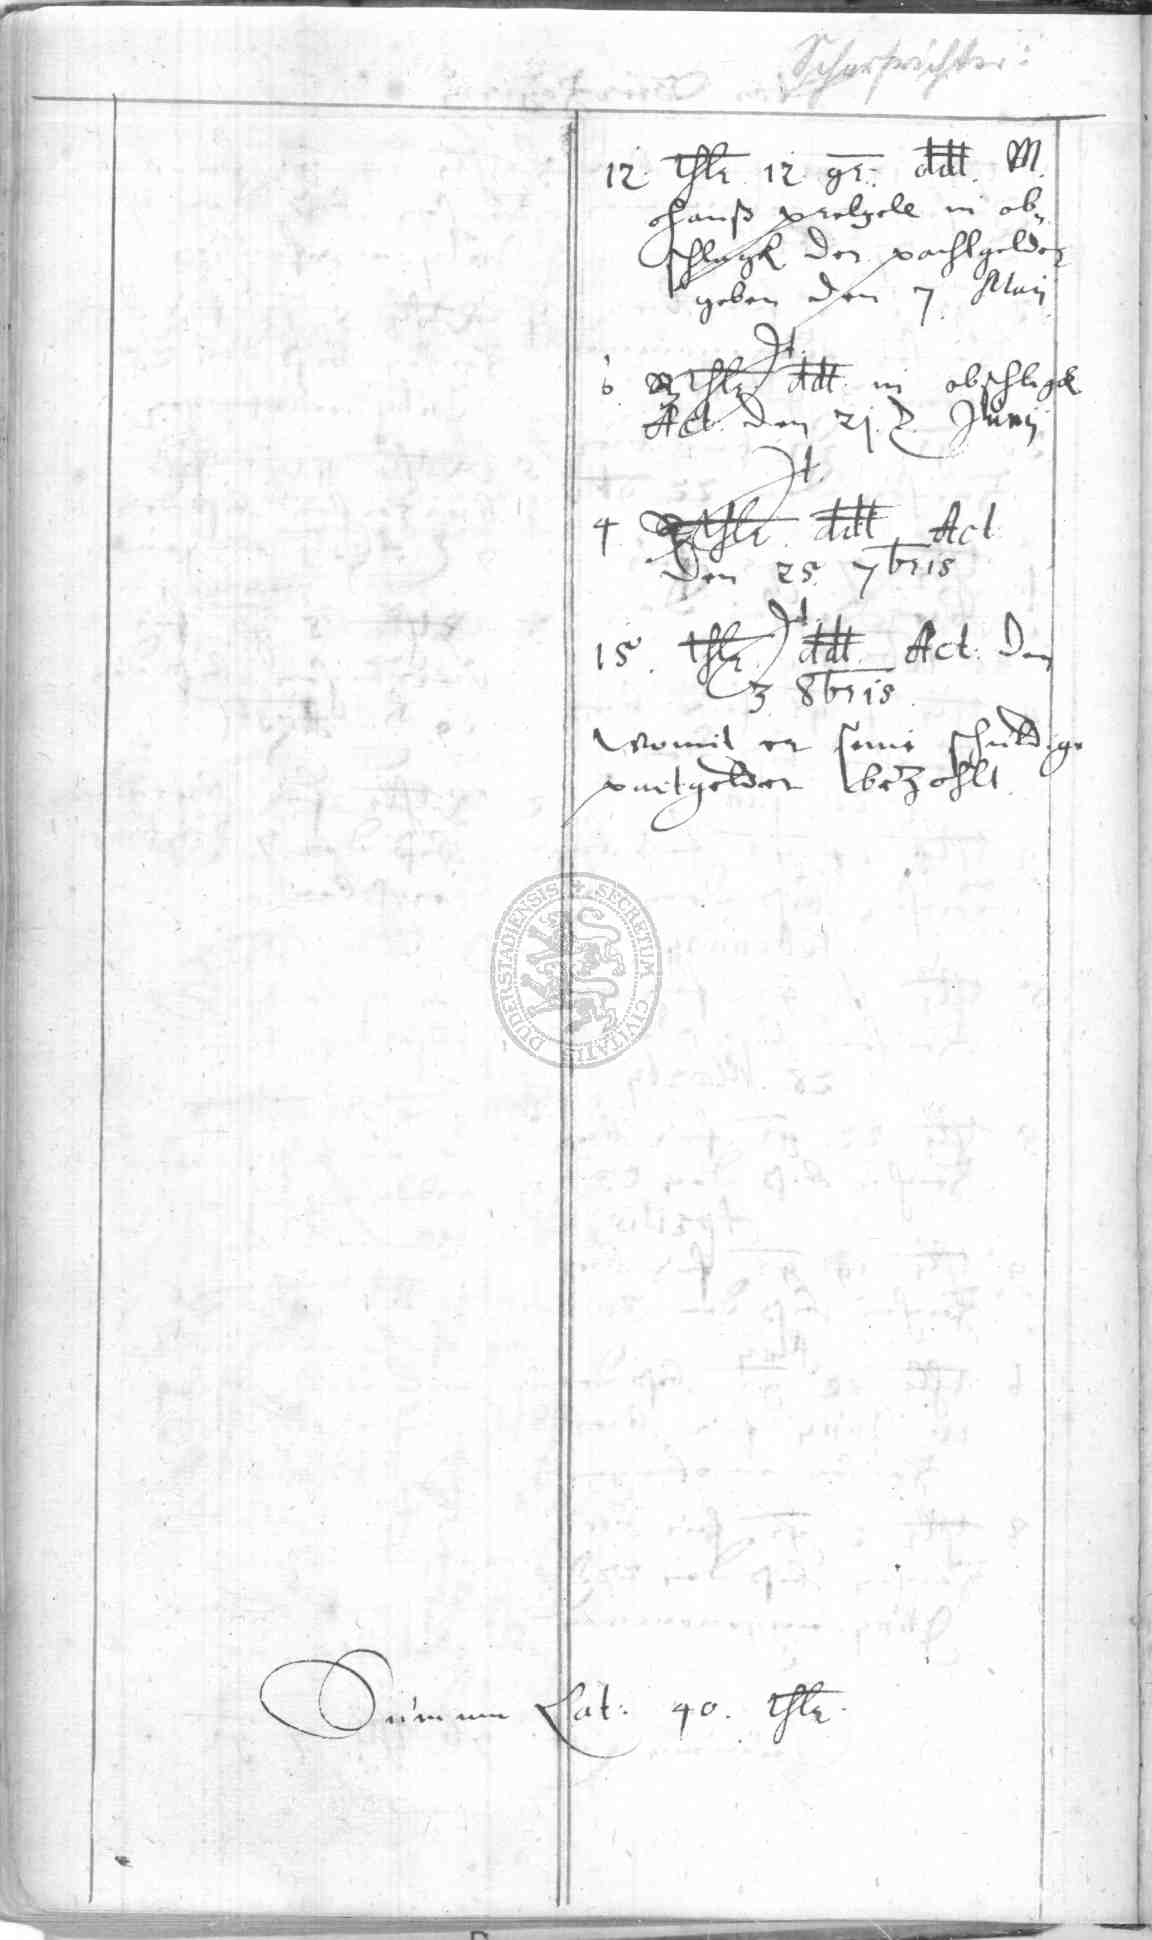 Scharfrichter:
12. thlr. 12 gr. ddt. M.
Hanß in ab¬
schlagk der pachtgelder
geben den 7. Maij
It.
6 Rthlr ddt. in abschlagk
Act. den 21. Junij
It.
4 Rthlr. ddt Act
den 25 7bris
It
15. thlr. ddt. Act. den
3 8bris.
Womit er seine schuldige
pachtgelder bezahlt.
DUDERSTADIENSIS SECRETUM CIVITATIS
Summa Lat. 40. thlr.